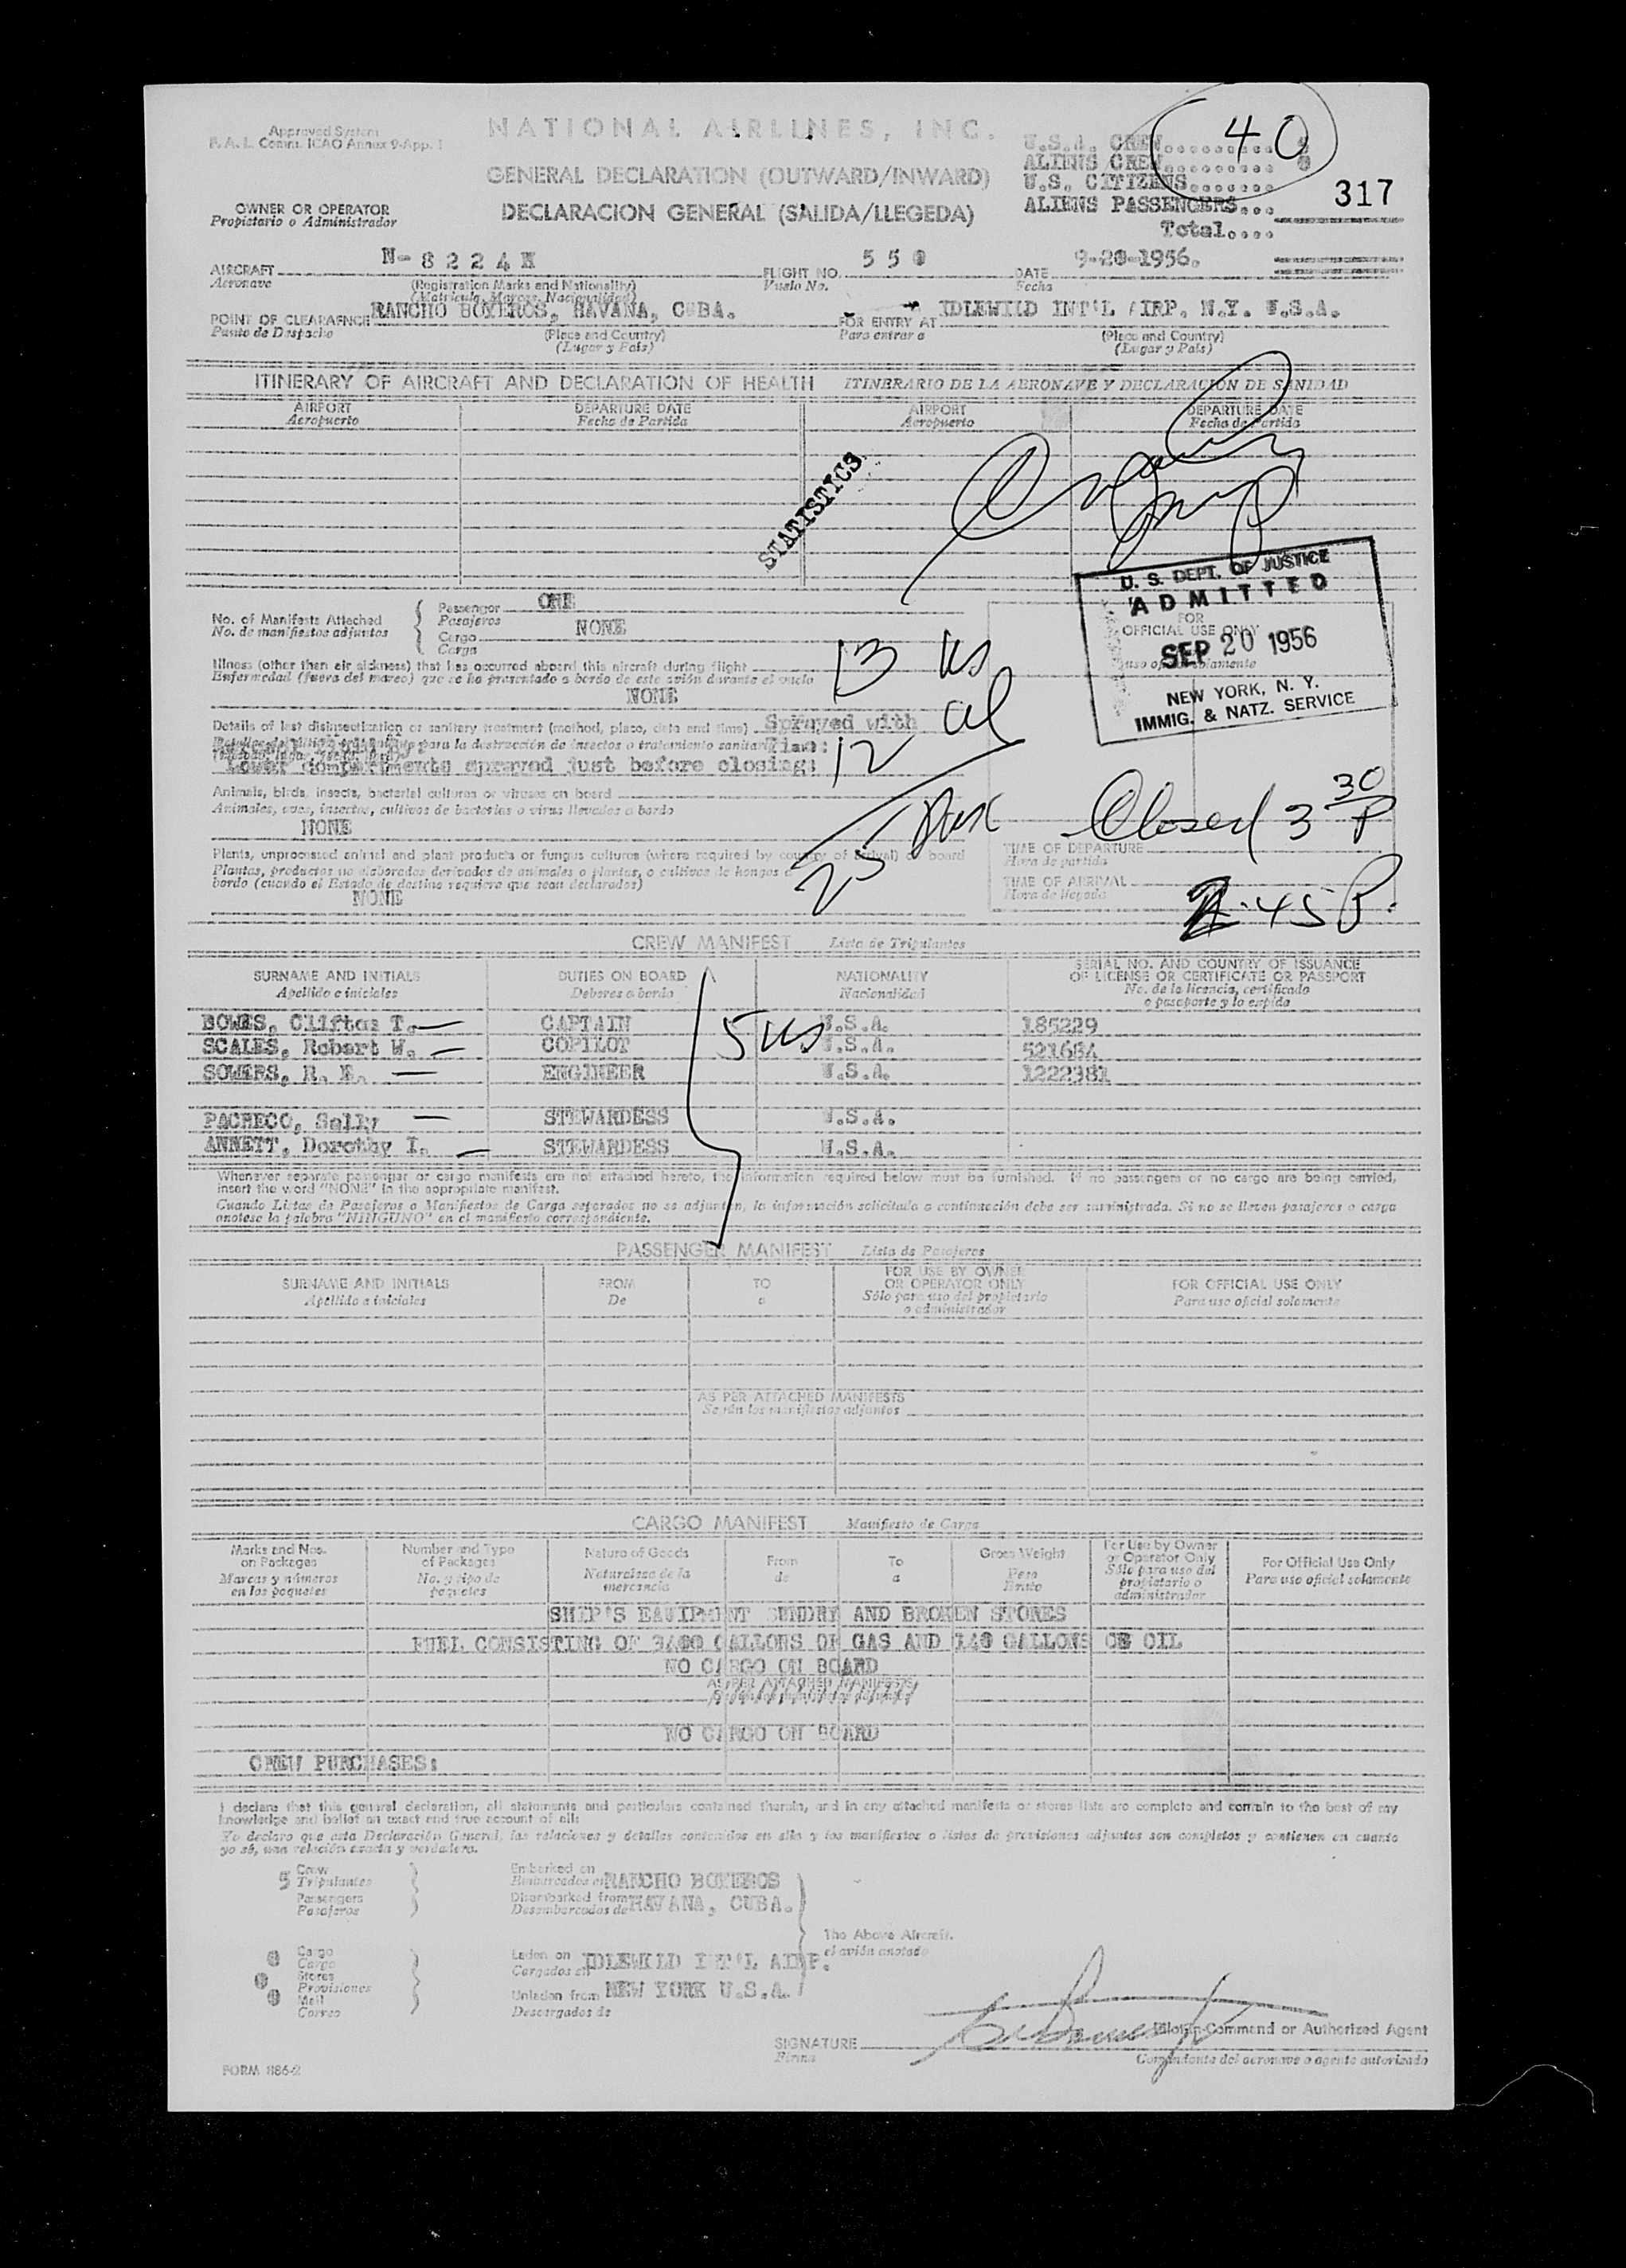 Approved System
F. A. L. Comm. ICAO Annex 9-App. 1
NATIONAL AIRLINES, INC.
GENERAL DECLARATION (OUTWARD/INWARD)
DECLARACION GENERAL (SALIDA/LLEGEDA)
U.S.A. CREW..........
ALIENS CREW..........
U.S. CITIZENS.......
ALIENS PASSENGERS...
Total....
40
317
OWNER OR OPERATOR
Propietario o Administrador
AIRCRAFT N-8224H FLIGHT NO. 550 DATE 9-20-1956.
Aeronave (Registration Marks and Nationality) Vuelo No. Fecha
(Matricula, Marcas, Nacionalidad)
POINT OF CLEARAFNCE RANCHO BOYEROS, HAVANA, CUBA. FOR ENTRY AT IDLEWILD INT'L AIRP. N.Y. U.S.A.
Punto de Despacho (Place and Country) Para entrar a (Place and Country)
(Lugar y Pais) (Lugar y Pais)
ITINERARY OF AIRCRAFT AND DECLARATION OF HEALTH ITINERARIO DE LA AERONAVE Y DECLARACION DE SANIDAD
AIRPORT DEPARTURE DATE AIRPORT DEPARTURE DATE
Aeropuerto Fecha de Partida Aeropuerto Fecha de Partida
STATISTICS
U. S. DEPT. OF JUSTICE
ADMITTED
FOR
OFFICIAL USE ONLY
SEP 20 1956
NEW YORK, N. Y.
IMMIG. & NATZ. SERVICE
No. of Manifests Attached Passenger ONE
No. de manifiestos adjuntos Pasajeros
Cargo NONE
Carga
Illness (other than air sickness) that has occurred aboard this aircraft during flight
Enfermedad (fuera del mareo) que se ha presentado a bordo de este avión durante el vuelo
NONE
13 us
12 al
25 Pax
Details of last disinsectization or sanitary treatment (method, place, date and time) Sprayed with
para la destrucción de insectos o tratamiento sanitario Time:
Lower compartments sprayed just before closing:
Animals, birds, insects, bacterial cultures or viruses on board
Animales, aves, insectos, cultivos de bacterias o virus llevados a bordo
NONE
Plants, unprocessed animal and plant products or fungus cultures (where required by country of arrival) on board
Plantas, productos no elaborados derivados de animales o plantas, o cultivos de hongos a
bordo (cuando el Estado de destino requiera que sean declarados)
NONE
Closed 3 30 P
TIME OF DEPARTURE
Hora de partida
TIME OF ARRIVAL
Hora de llegada
2.45 P.
CREW MANIFEST Lista de Tripulantes
SURNAME AND INITIALS DUTIES ON BOARD NATIONALITY SERIAL NO. AND COUNTRY OF ISSUANCE
OF LICENSE OR CERTIFICATE OR PASSPORT
Apellido e iniciales Deberes a bordo Nacionalidad No. de la licencia, certificado
o pasaporte y lo expida
BOWES, Clifton T. CAPTAIN U.S.A. 185229
SCALES, Robert W. COPILOT U.S.A. 521684
SOWERS, R. E. ENGINEER U.S.A. 1222381
PACHECO, Sally STEWARDESS U.S.A.
ANNETT, Dorothy I. STEWARDESS U.S.A.
5 us
Whenever separate passenger or cargo manifests are not attached hereto, the information required below must be furnished. If no passengers or no cargo are being carried,
insert the word "NONE" in the appropriate manifest.
Cuando Listas de Pasajeros o Manifiestos de Carga separados no se adjunten, la información solicitada a continuación debe ser suministrada. Si no se lleven pasajeros o carga
anotese la palabra "NINGUNO" en el manifiesto correspondiente.
PASSENGER MANIFEST Lista de Pasajeros
SURNAME AND INITIALS FROM TO FOR USE BY OWNER
OR OPERATOR ONLY FOR OFFICIAL USE ONLY
Apellido e iniciales De a Sólo para uso del propietario
o administrador Para uso oficial solamente
AS PER ATTACHED MANIFESTS
Según los manifiestos adjuntos
CARGO MANIFEST Manifiesto de Carga
Marks and Nos.
on Packages
Marcas y números
en los paquetes
Number and Type
of Packages
No. y tipo de
paquetes
Nature of Goods
Naturaleza de la
mercancia
From
de
To
a
Gross Weight
Peso
Bruto
For Use by Owner
or Operator Only
Sólo para uso del
propietario o
administrador
For Official Use Only
Para uso oficial solamente
SHIP'S EQUIPMENT SUNDRY AND BROKEN STORES
FUEL CONSISTING OF 3400 GALLONS OF GAS AND 140 GALLONS OF OIL
NO CARGO ON BOARD
AS PER ATTACHED MANIFESTS
NO CARGO ON BOARD
CREW PURCHASES:
I declare that this general declaration, all statements and particulars contained therein, and in any attached manifests or stores lists are complete and contain to the best of my
knowledge and belief an exact and true account of all:
Yo declaro que esta Declaración General, las relaciones y detalles contenidos en ella y los manifiestos o listas de provisiones adjuntos son completos y contienen en cuanto
yo sé, una relación exacta y verdadera.
5 Crew
Tripulantes
Passengers
Pasajeros
Embarked on
Embarcados en RANCHO BOYEROS
Disembarked from HAVANA, CUBA.
Desembarcados de
The Above Aircraft.
el avión anotado
0 Cargo
Carga
0 Stores
Provisiones
0 Mail
Correo
Laden on IDLEWILD INT'L AIRP.
Cargados en
Unladen from NEW YORK U.S.A.
Descargados de
SIGNATURE
Firma
Pilot-in-Command or Authorized Agent
Comandante del aeronave o agente autorizado
FORM 886-2